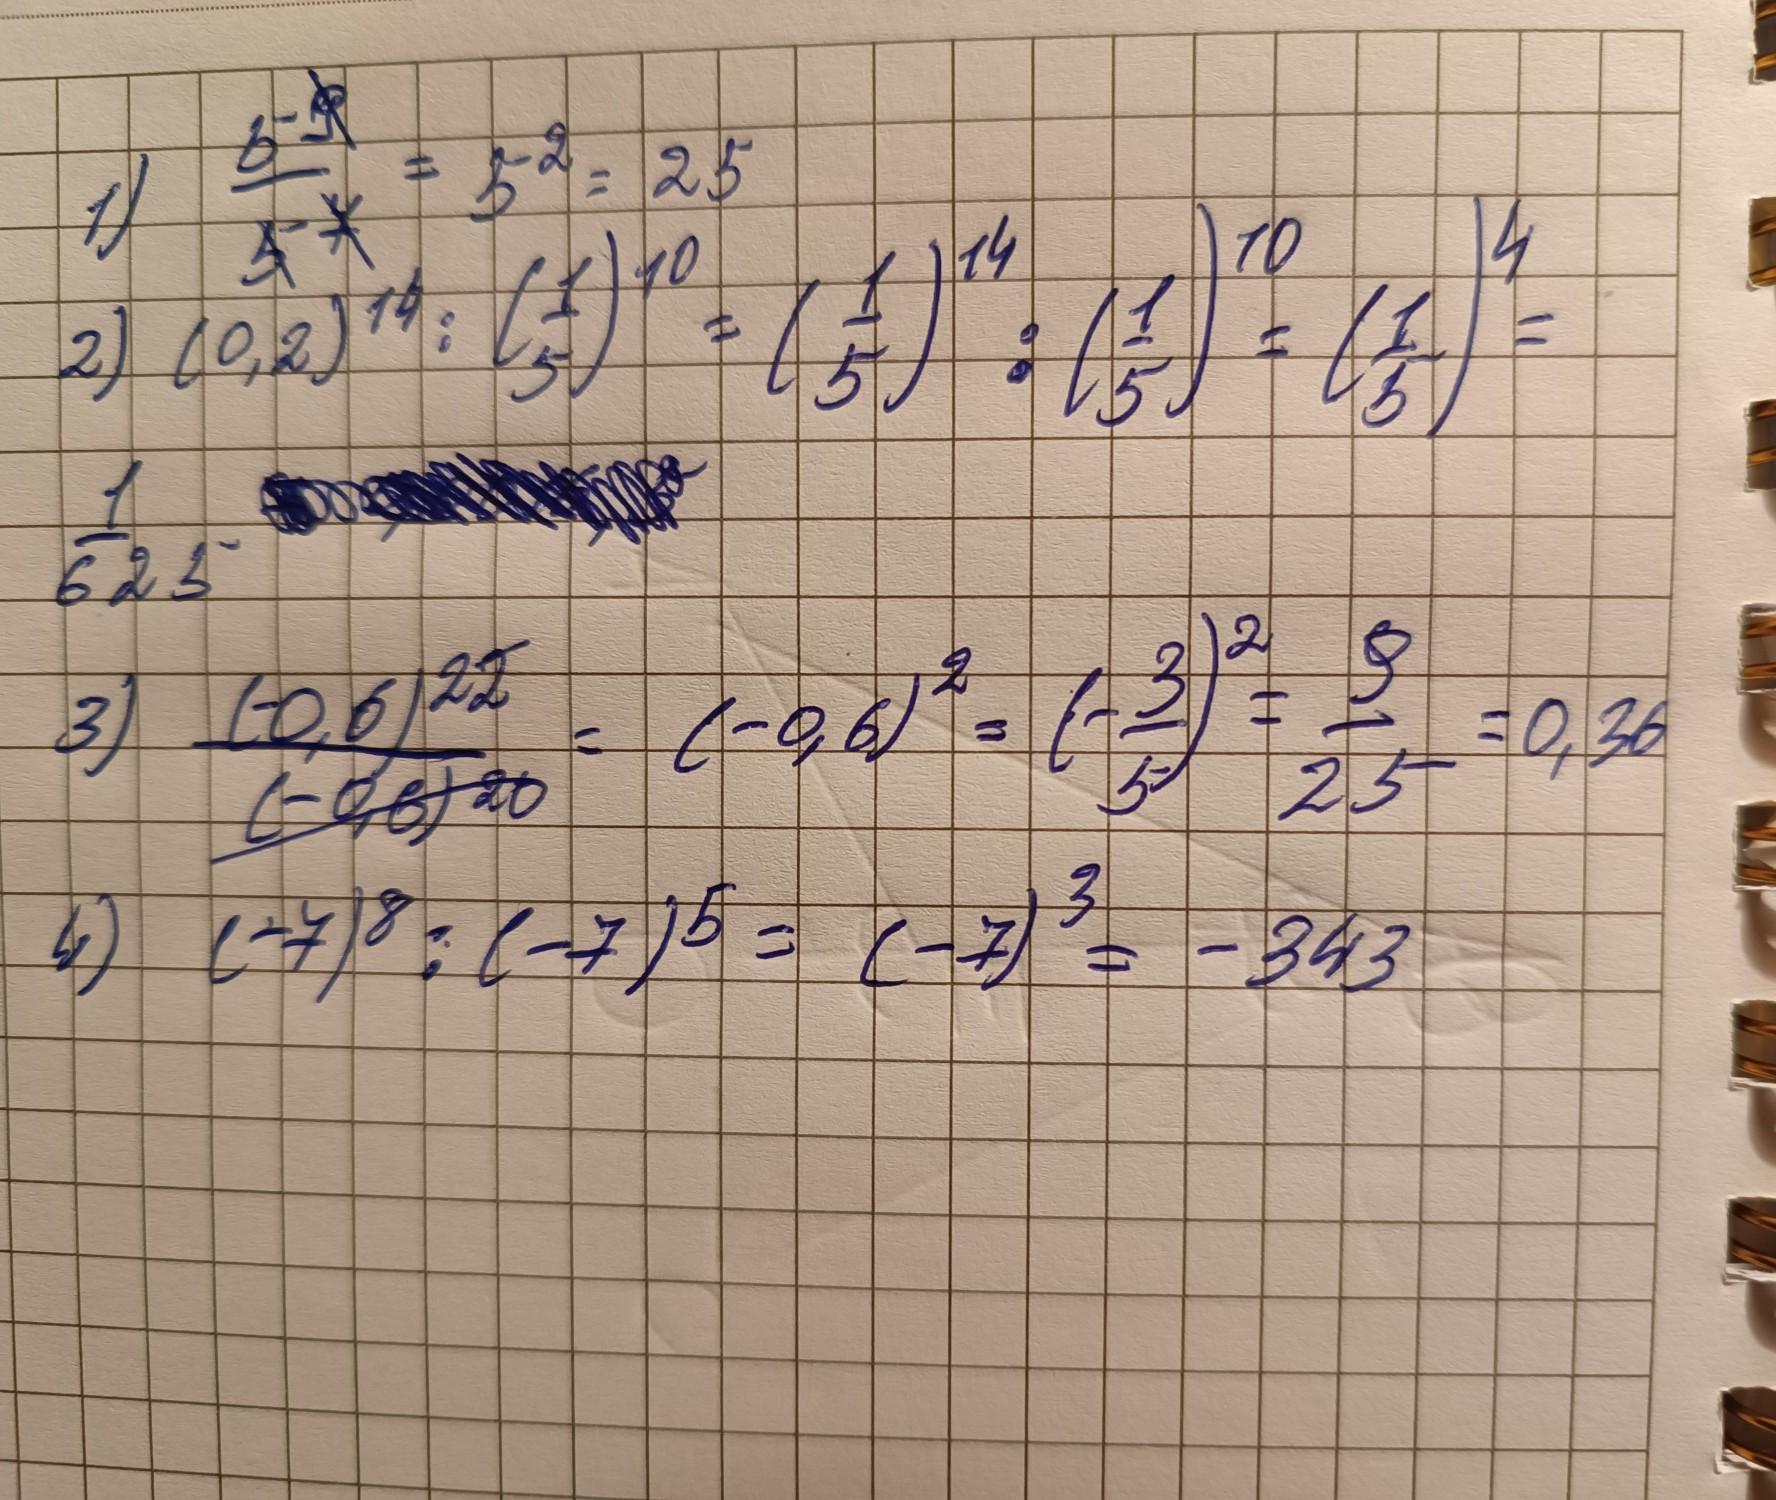 1) 5^9 / 5^7 = 5^2 = 25
2) (0,2)^14 : (1/5)^10 = (1/5)^14 : (1/5)^10 = (1/5)^4 =
1/625
3) (-0,6)^22 / (-0,6)^20 = (-0,6)^2 = (-3/5)^2 = 9/25 = 0,36
4) (-7)^8 : (-7)^5 = (-7)^3 = -343